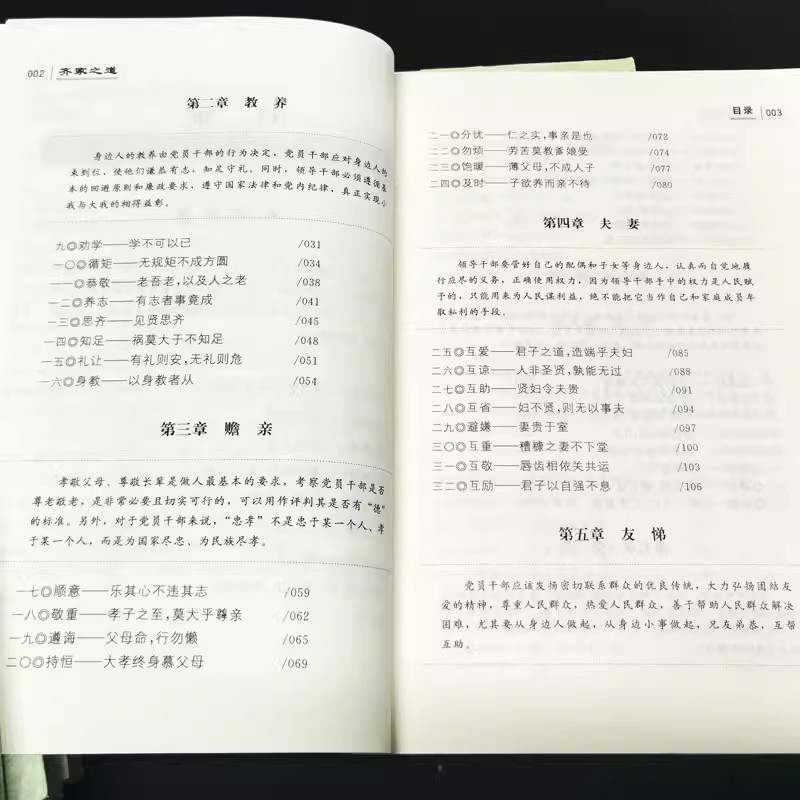 002 齐家之道
第二章 教 养
身边人的教养由党员干部的行为决定，党员干部应对身边人约
束到位，使他们谦恭有志，知足守礼。同时，领导干部必须遵循基
本的回避原则和廉政要求，遵守国家法律和党内纪律，真正实现小
我与大我的相得益彰。
九◎劝学——学不可以已 /031
一〇◎循矩——无规矩不成方圆 /034
一一◎恭敬——老吾老，以及人之老 /038
一二◎养志——有志者事竟成 /041
一三◎思齐——见贤思齐 /045
一四◎知足——祸莫大于不知足 /048
一五◎礼让——有礼则安，无礼则危 /051
一六◎身教——以身教者从 /054
第三章 赡 亲
孝敬父母、尊敬长辈是做人最基本的要求，考察党员干部是否
尊老敬老，是非常必要且切实可行的，可以用作评判其是否有“德”
的标准。另外，对于党员干部来说，“忠孝”不是忠于某一个人、孝
于某一个人，而是为国家尽忠、为民族尽孝。
一七◎顺意——乐其心不违其志 /059
一八◎敬重——孝子之至，莫大乎尊亲 /062
一九◎遵诲——父母命，行勿懒 /065
二〇◎持恒——大孝终身慕父母 /069
目录 003
二一◎分忧——仁之实，事亲是也 /072
二二◎勿烦——劳苦莫教爹娘受 /074
二三◎饱暖——薄父母，不成人子 /077
二四◎及时——子欲养而亲不待 /080
第四章 夫 妻
领导干部要管好自己的配偶和子女等身边人，认真而自觉地履
行应尽的义务，正确使用权力，因为领导干部手中的权力是人民赋
予的，只能用来为人民谋利益，绝不能把它当作自己和家庭成员牟
取私利的手段。
二五◎互爱——君子之道，造端乎夫妇 /085
二六◎互谅——人非圣贤，孰能无过 /088
二七◎互助——贤妇令夫贵 /091
二八◎互省——妇不贤，则无以事夫 /094
二九◎避嫌——妻贵于室 /097
三〇◎互重——糟糠之妻不下堂 /100
三一◎互敬——唇齿相依关共运 /103
三二◎互励——君子以自强不息 /106
第五章 友 悌
党员干部应该发扬密切联系群众的优良传统，大力弘扬团结友
爱的精神，尊重人民群众，热爱人民群众，善于帮助人民群众解决
困难，尤其要从身边人做起，从身边小事做起，兄友弟恭，互帮
互助。